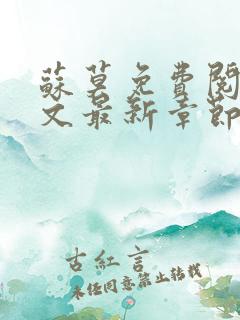 蘇暮免費閱
文最新章節
古紅言
未经同意禁止转载